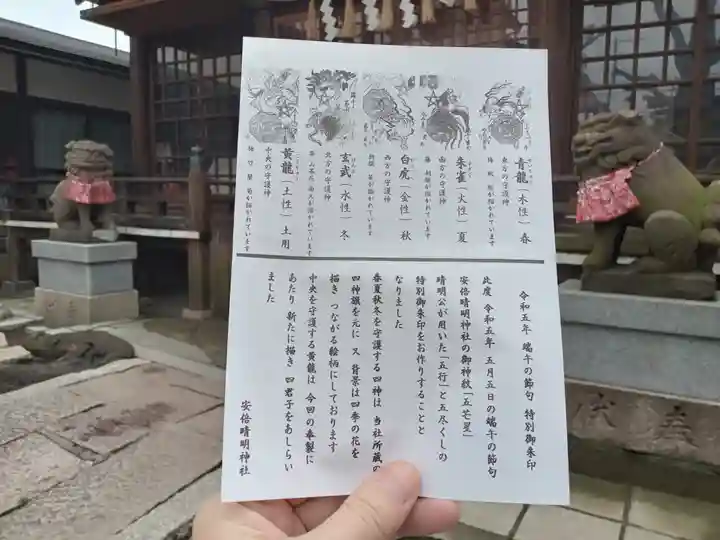 青龍（木性）春
東方の守護神
朱雀（火性）夏
白虎（金性）秋
西方の守護神
玄武（水性）冬
北方の守護神
黄龍（土性）土用
中央の守護神
令和五年 端午の節句 特別御朱印
此度 令和五年 五月五日の端午の節句
安倍晴明神社の御神紋「五芒星」
晴明公が用いた「五行」と五尽くしの
特別御朱印をお作りすることと
なりました
春夏秋冬を守護する四神は 当社所蔵の
四神旗を元に 又 背景は四季の花を
描き つながる絵柄にしております
中央を守護する黄龍は 今回の奉製に
あたり 新たに描き 四君子をあしらい
ました
安倍晴明神社